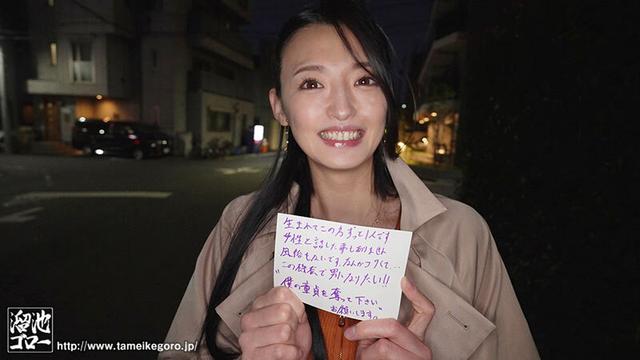 生まれてこの方ずっと1人です
女性と話した事もありません
風俗もないです。なんかコワくて…
この検衣で男になりたい!!
"僕の童貞を奪って下さい"
お願いします。
溜池
ゴロー
http://www.tameikegoro.jp/